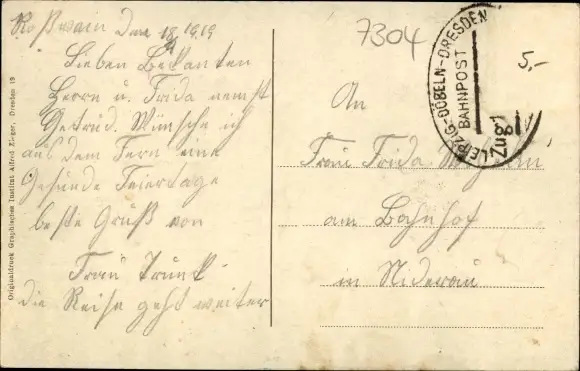 Roßwein Den 18 1919
Lieben Bekanten
Herrn u. Frida nemst
Getrud. Wünsche ich
aus dem Fern eine
Gesunde Feiertage
beste Gruß von
Frau Trunk
die Reise geht weiter
Originaldruck Graphisches Institut Alfred Zieger, Dresden 19
7304
5,-
LEIPZIG-DÖBELN-DRESDEN
BAHNPOST
Zug
An
Frau Frida
am Bahnhof
in Niderau